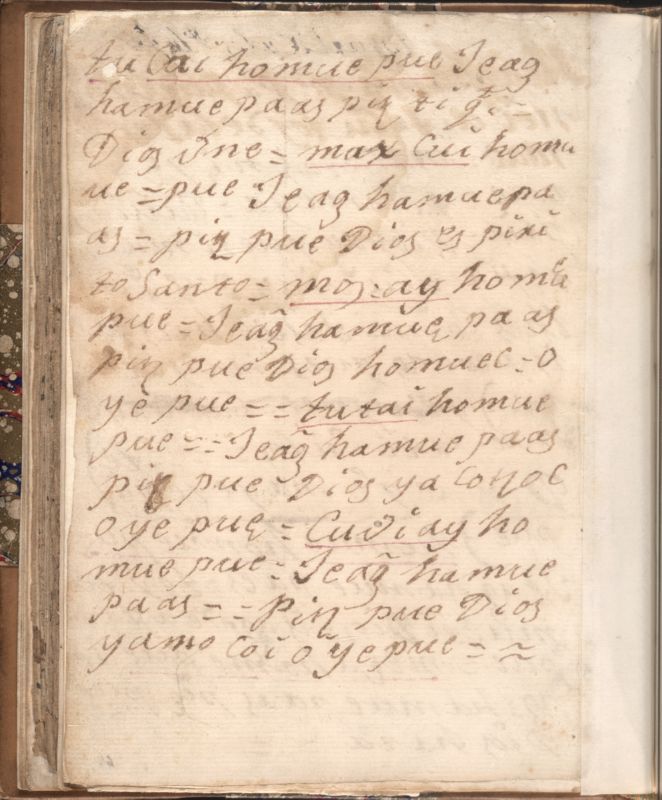 tu tai homue pue Jeag
hamue paas piη ti
Dios Vne = max Cui homu
ue = pue Jeag hamue pa
as = piη pue Dios es piri
to Santo = mos = ay homue
pue = Jeag̃ hamue paas
piη pue Dios homuec = o
ye pue = = tutai homue
pue = = Jeag̃ hamue paas
piη pue Dios ya coηoc
o ye pue = Cuviay ho
mue pue = Jeag̃ hamue
paas = = piη pue Dios
yamo coi o ye pue = ≈